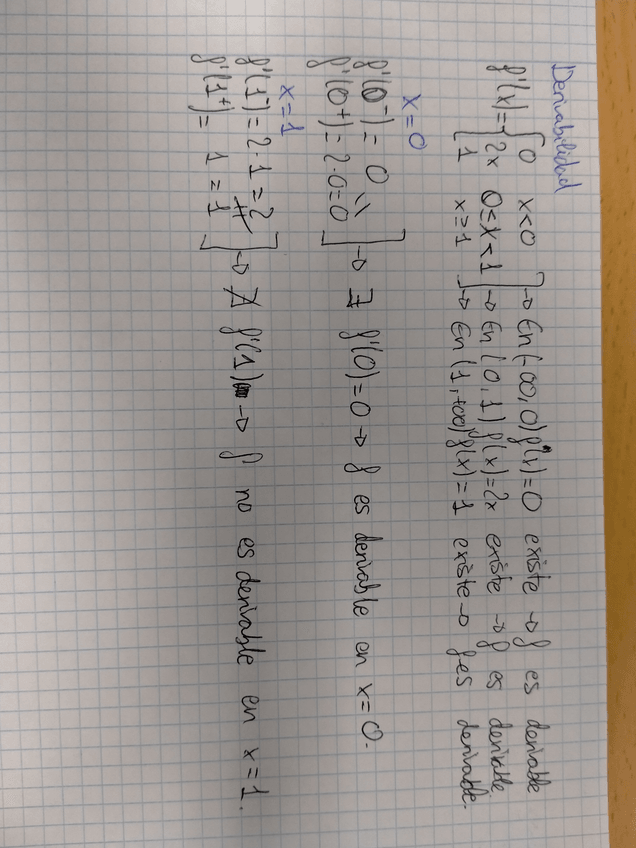 Derivabilidad
f'(x) = { 0 x<0 → En (-∞,0) f'(x)=0 existe → f es derivable
2x 0≤x<1 → En (0,1) f'(x)=2x existe → f es derivable.
1 x≥1 → En (1,+∞) f'(x)=1 existe → f es derivable.
x=0
f'(0⁻)= 0
f'(0⁺)=2·0=0 ] → ∃ f'(0)=0 → f es derivable en x=0.
x=1
f'(1⁻)=2·1=2
≠
f'(1⁺)= 1 = 1 ] → ∄ f'(1) → f no es derivable en x=1.